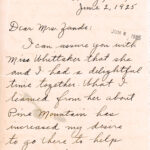 June 2, 1925
Dear Mrs. Zande:
I can assure you with
Miss Whittaker that she
and I had a delightful
time together. What I
learned from her about
Pine Mountain has
increased my desire
to go there to help